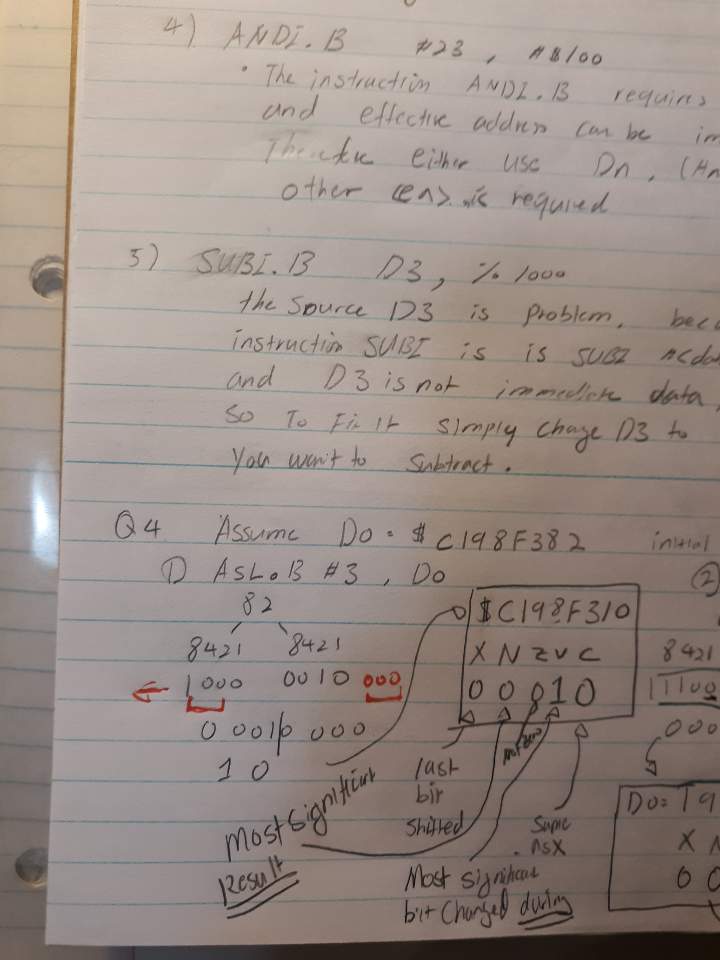 4) ANDI.B #23, #$100
• The instruction ANDI.B requires
and effective address can be im
Therefore either use Dn, (An
other <ea> is required
5) SUBI.B D3, %1000
the source D3 is problem, beca
instruction SUBI is is SUBI #<da
and D3 is not immediate data,
So To Fix It simply change D3 to
You want to subtract.
Q4 Assume D0 = $C198F382 initial
① ASL.B #3, D0 ②
82
8421 8421
1000 0010 000
0 0010 000
10
$C198F310
X N Z V C
0 0 0 1 0
8421
11100
000
last
bit
shifted
not zero
Same
as X
Most significant
Result
Most significant
bit changed during
D0 = 19
X N
0 0